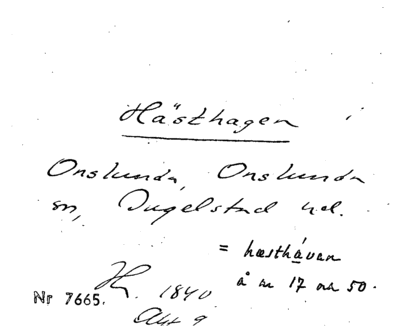 Hästhagen i
Onslunda, Onslunda
sn, Ingelstad hd.
= hæsthávan
å æ 17 50.
H. 1840
Nr 7665.
Akt 9